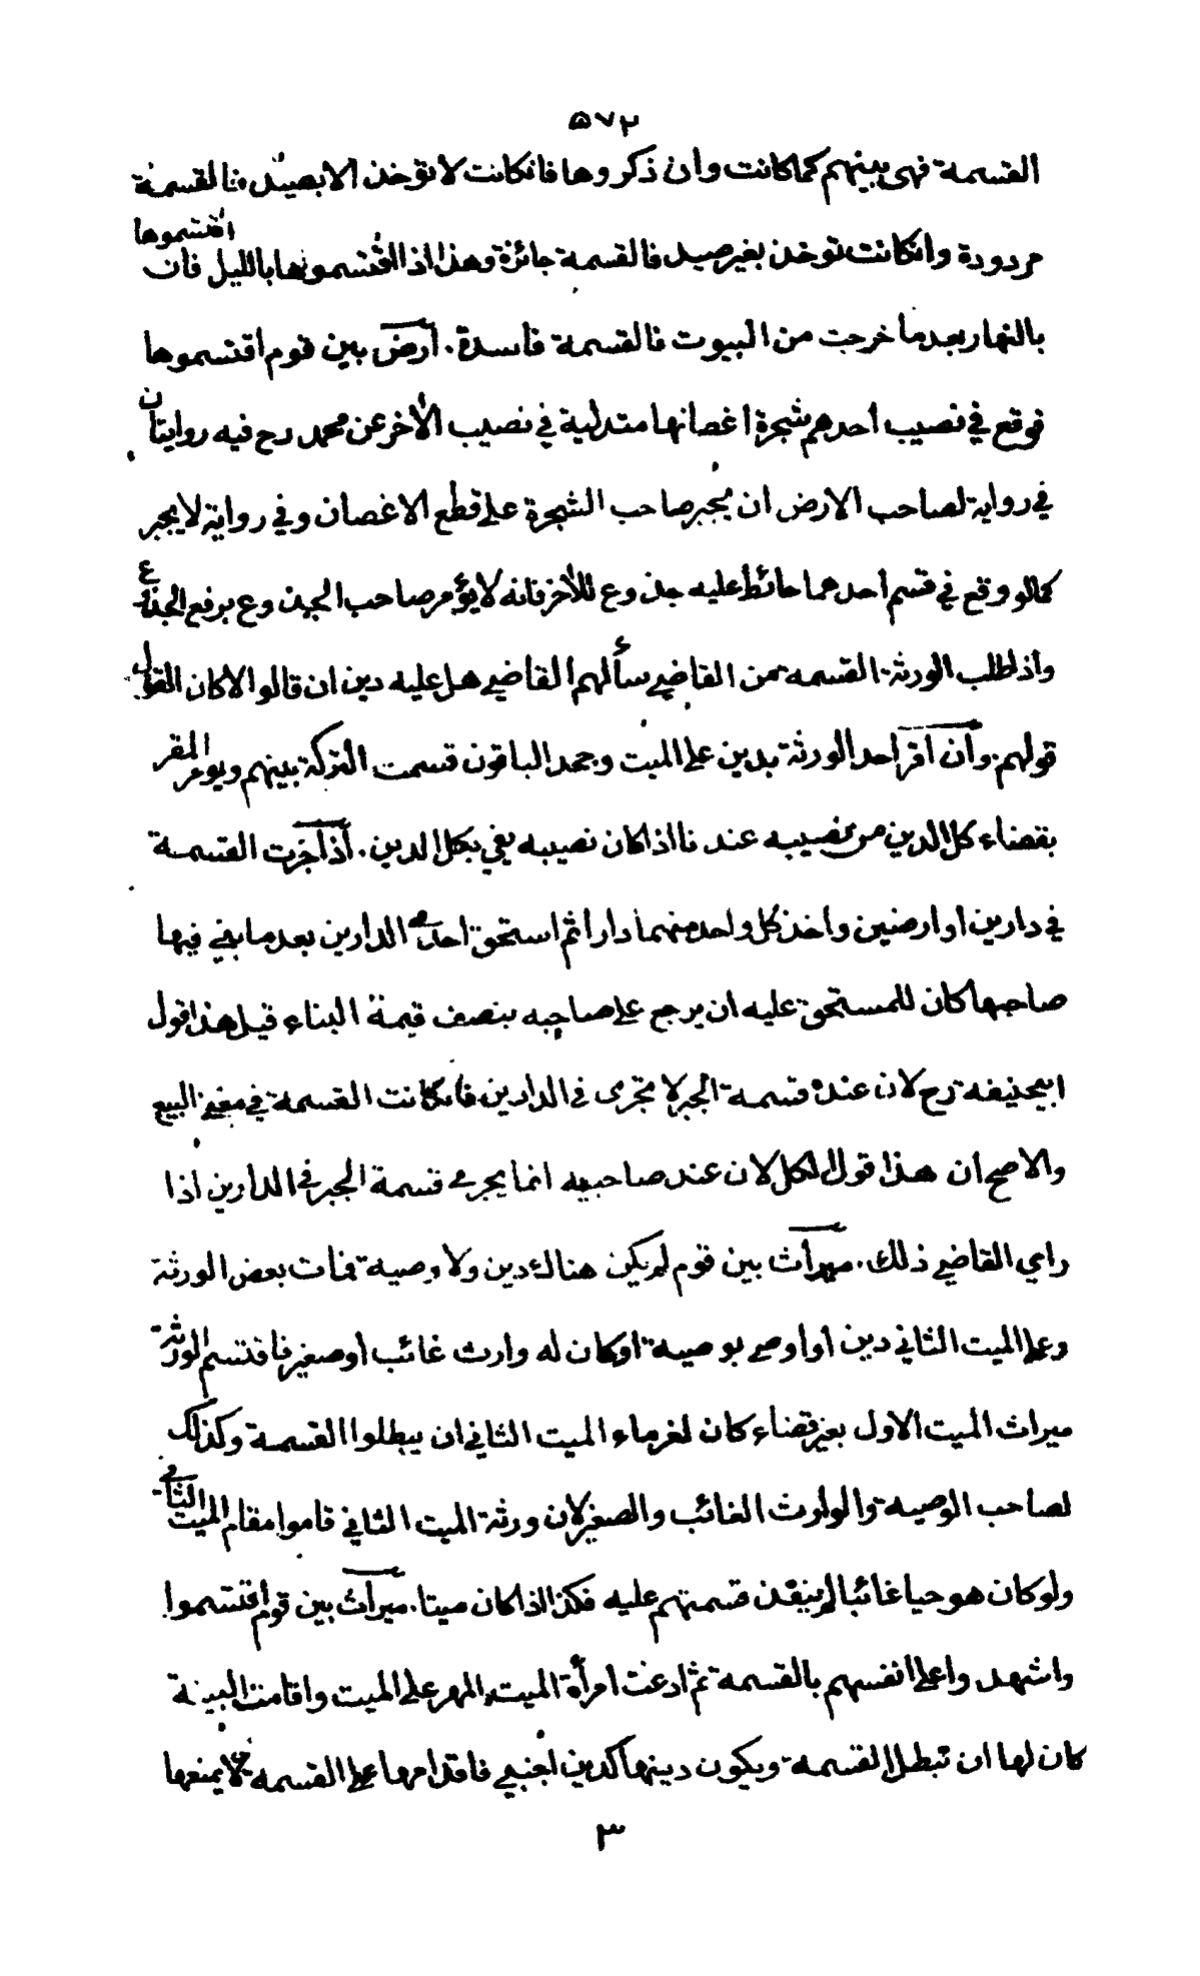 ٥٧٢
القسمة فهى بينهم كما كانت وان ذكروها فانكانت لا تؤخذ الا بصيد فالقسمة
مردودة وانكانت توخذ بغير صيد فالقسمة جائزة وهذا اذا اقتسموها بالليل فان اقتسموها
بالنهار بعد ما خرجت من البيوت فالقسمة فاسدة. ارض بين قوم اقتسموها
فوقع في نصيب أحدهم شجرة اغصانها متدلية في نصيب الآخر عن محمد رح فيه روايتان
في رواية لصاحب الارض ان يجبر صاحب الشجرة على قطع الاغصان وفي رواية لا يجبر
كما لو وقع في قسم أحدهما حائط عليه جذوع للآخر فانه لا يؤمر صاحب الجذوع برفع الجذوع
واذا طلب الورثة القسمة من القاضي سألهم القاضي هل عليه دين ان قالوا لا كان القول
قولهم. وان اقر احد الورثة بدين على الميت وجحد الباقون قسمت التركة بينهم ويؤمر المقر
بقضاء كل الدين من نصيبه عندنا اذا كان نصيبه يفي بكل الدين. اذا جرت القسمة
في دارين او ارضين واخذ كل واحد منهما دارا ثم استحق احدى الدارين بعد ما بنى فيها
صاحبها كان للمستحق عليه ان يرجع على صاحبه بنصف قيمة البناء قيل هذا قول
ابيحنيفة رح لان عنده قسمة الجبر لا تجرى في الدارين فكانت القسمة في معنى البيع
والاصح ان هذا قول الكل لان عند صاحبيه انما يجرى قسمة الجبر في الدارين اذا
راى القاضي ذلك. ميراث بين قوم لم يكن هناك دين ولا وصية فمات بعض الورثة
وعلى الميت الثاني دين أو اوصى بوصية او كان له وارث غائب أو صغير فاقتسم الورثة
ميراث الميت الاول بغير قضاء كان لغرماء الميت الثاني ان يبطلوا القسمة وكذلك
لصاحب الوصية والوارث الغائب والصغير لان ورثة الميت الثاني قاموا مقام الميت الثاني
ولو كان هو حيا غائبا لم ينفذ قسمتهم عليه فكذا اذا كان ميتا. ميراث بين قوم اقتسموا
واشهدوا على انفسهم بالقسمة ثم ادعت امرأة الميت المهر على الميت واقامت البينة
كان لها ان تبطل القسمة ويكون دينها كدين اجنبي فاقدامها على القسمة لا يمنعها
٣